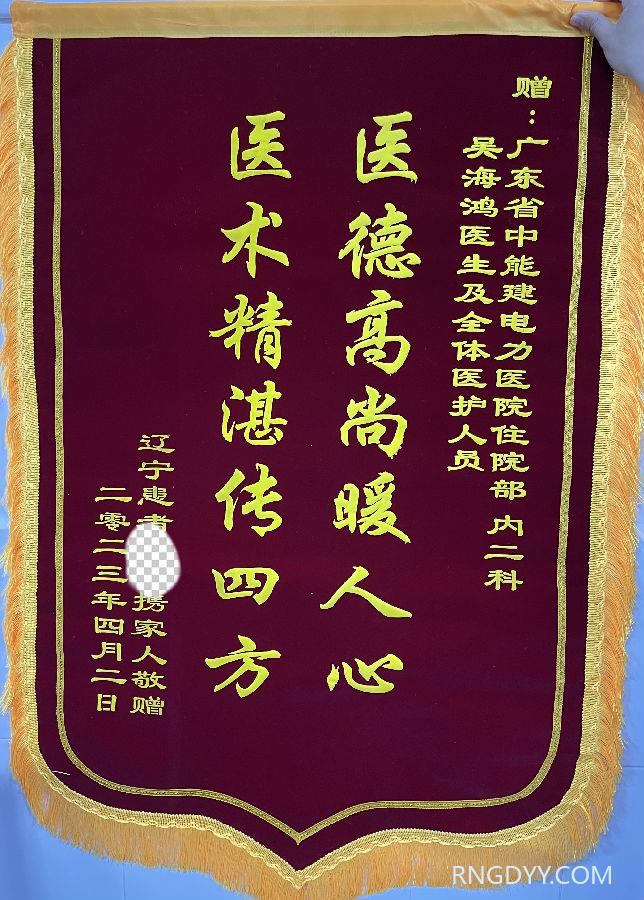 赠：广东省中能建电力医院住院部 内二科
吴海鸿医生及全体医护人员
医德高尚暖人心
医术精湛传四方
辽宁患者 携家人敬赠
二零二三年四月二日
RNGDYY.COM